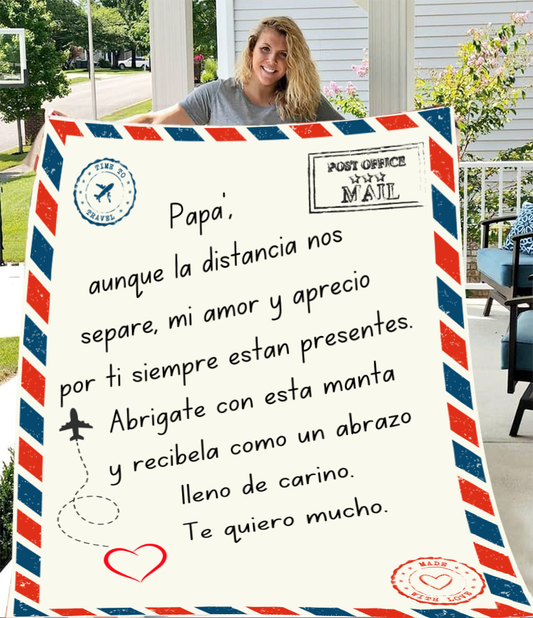 TIME TO
TRAVEL
POST OFFICE
MAIL
Papa',
aunque la distancia nos
separe, mi amor y aprecio
por ti siempre estan presentes.
Abrigate con esta manta
y recibela como un abrazo
lleno de carino.
Te quiero mucho.
MADE
WITH LOVE